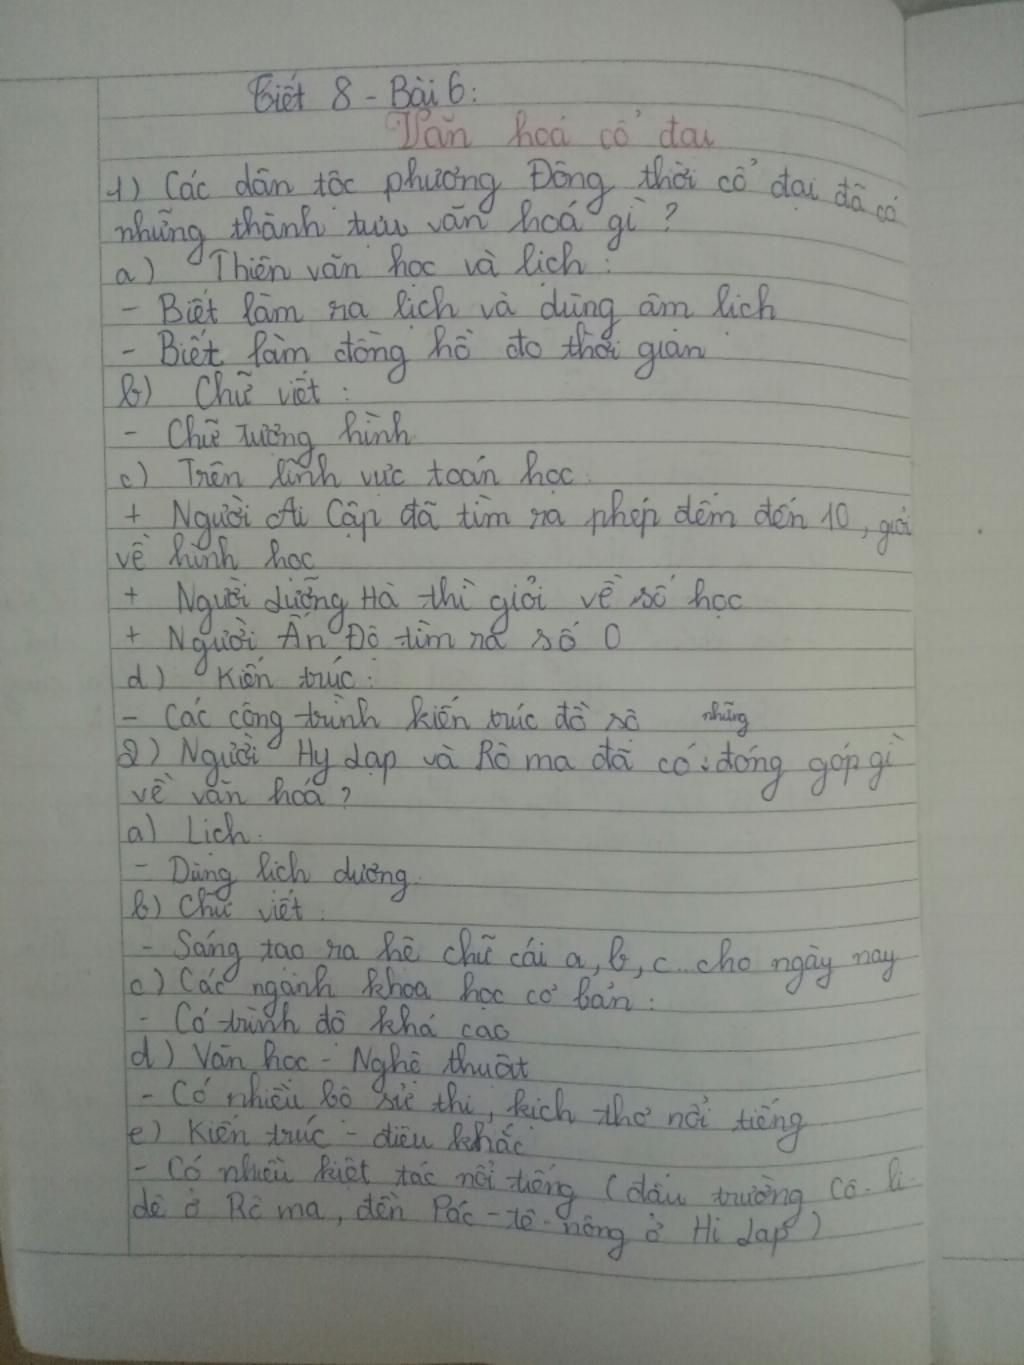 Tiết 8 - Bài 6:
Văn hoá cổ đại
1) Các dân tộc phương Đông thời cổ đại đã có
những thành tựu văn hoá gì ?
a) Thiên văn học và lịch :
- Biết làm ra lịch và dùng âm lịch
- Biết làm đồng hồ đo thời gian
b) Chữ viết :
- Chữ tượng hình
c) Trên lĩnh vực toán học :
+ Người Ai Cập đã tìm ra phép đếm đến 10, giỏi
về hình học
+ Người Lưỡng Hà thì giỏi về số học
+ Người Ấn Độ tìm ra số 0
d) Kiến trúc :
- Các công trình kiến trúc đồ sộ
2) Người Hy Lạp và Rô ma đã có những đóng góp gì
về văn hoá ?
a) Lịch :
- Dùng lịch dương.
b) Chữ viết :
- Sáng tạo ra hệ chữ cái a, b, c... cho ngày nay
c) Các ngành khoa học cơ bản :
- Có trình độ khá cao
d) Văn học - Nghệ thuật
- Có nhiều bộ sử thi, kịch thơ nổi tiếng
e) Kiến trúc - điêu khắc
- Có nhiều kiệt tác nổi tiếng (đấu trường Cô-li-
dê ở Rô ma, đền Pác-tê-nông ở Hi Lạp)